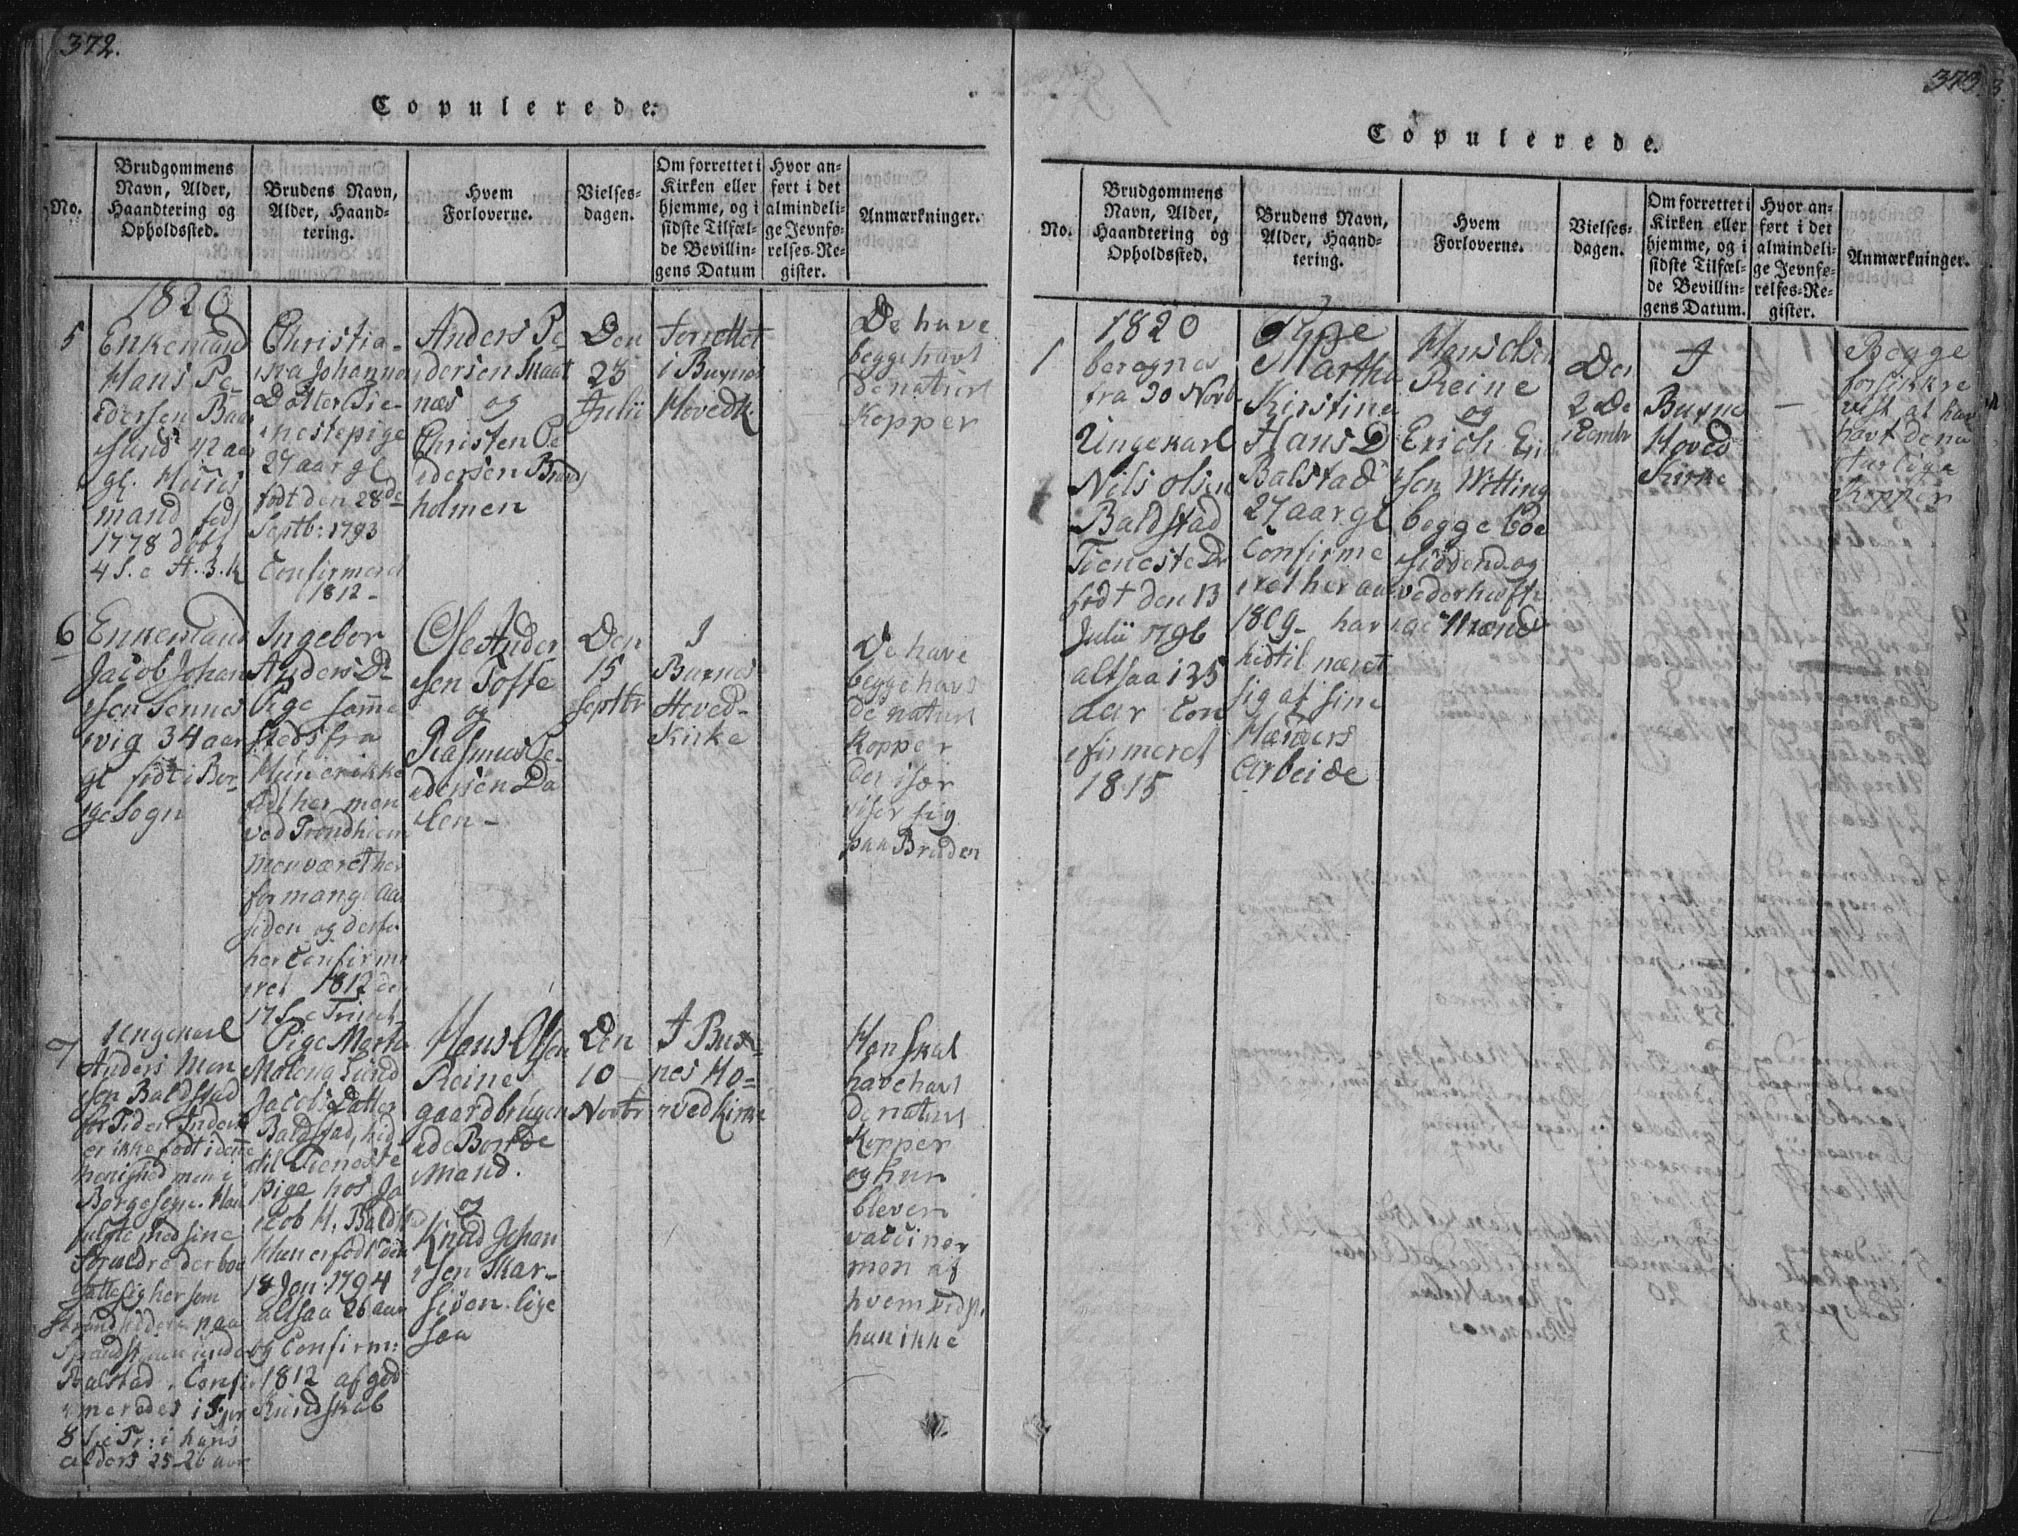 372.
Copulerede.
No.
Brudgommens Navn, Alder, Haandtering og Opholdssted.
Brudens Navn, Alder, Haandtering.
Hvem Forloverne.
Vielsesdagen.
Om forrettet i Kirken eller hjemme, og i sidste Tilfælde Bevillingens Datum
Hvor anført i det almindelige Jevnførelses-Register.
Anmærkninger.
1820
5
Enkemand
Hans Pe-
dersen Bal
sund 42 aar
gl. Huus
mand
1778
4 S. e H. 3. K
Christia-
Johannes
Datter Tie-
nestepige
27 aar gl
født den 28de
Septb: 1793
Confirmeret
1812-
Anders Pe-
dersen Knaat
næs og
Christen Pe
dersen Brand
holmen
Den
23
Julii
Forrettet
i Buxnes
Hovedk.
De have
begge havt
de naturl
Kopper
6
Enkemand
Jacob Johan
sen Sennes
vig 34 aar
gl født i Bor-
ge Sogn
Ingebor
Anders D
Pige samme
steds fra
Hun er ikke
født her men
ved Trondhiem
men været her
for mange Aar
siden og
her Confirme
ret 1812 den
17 S. e Trinit.
Ole Ander
sen Toffe
og
Rasmus Pe-
dersen Da
len-
Den
15
Septbr
I
Buxnes
Hoved-
Kirke
De have
begge havt
de naturl
Kopper
der især
viser sig
paa Bruden
7
Ungekarl
Anders Mon
sen Baldstad
for Tiden
er ikke født i denne
Menighed men i
Borge Sogn. Han
fulgte med sine
Forældre der boe
satte sig her som
paa
under
Balstad. Confir
meredes i
8 S. e Tr: i hans
alders 25-26 aar
Pige Martha
Malena Lund
Jacobs Datter
Baldstad, hid
til Tieneste
pige hos Ja
cob H. Baldst
Hun er født den
18 Jan: 1794
altsaa 26 aar
og Confirm:
1812 af god
Kundskab
Hans Olsen
Reine
gaardbrugen
de Bonde
Mand.
og
Knud Johan
sen Skar-
siven lige
saa
Den
10
Novbr
I Bux-
nes Ho-
vedkirke
Han skal
have havt
de naturl
Kopper
og hun
bleven
vaccinen
men af
hvem vidste
han ikke
373.
Copulerede.
No.
Brudgommens Navn, Alder, Haandtering og Opholdssted.
Brudens Navn, Alder, Haandtering.
Hvem Forloverne.
Vielsesdagen.
Om forrettet i Kirken eller hjemme, og i sidste Tilfælde Bevillingens Datum.
Hvor anført i det almindelige Jevnførelses-Register.
Anmærkninger.
1
1820
beregnes
fra 30 Novb
Ungekarl
Nils Olsen
Baldstad
Tieneste Dr
født den 13
Julii 1796
altsaa 25
aar Con
firmeret
1815
Pige
Martha
Kirstine
Hans D
Balstad
27 aar gl
Confirme
ret her aar
1809- har
hidtil næret
sig af sine
Hænders
Arbeide
Hans Olsen
Reine
og
Erich Eri
sen Witting
begge Boe
siddend og
vederhæfti
ge Mænd
Den
2 De
cembr
I
Buxne
Hoved
Kirke
—
Begge
forsikkre
vist at have
havt de na
turlige
Kopper